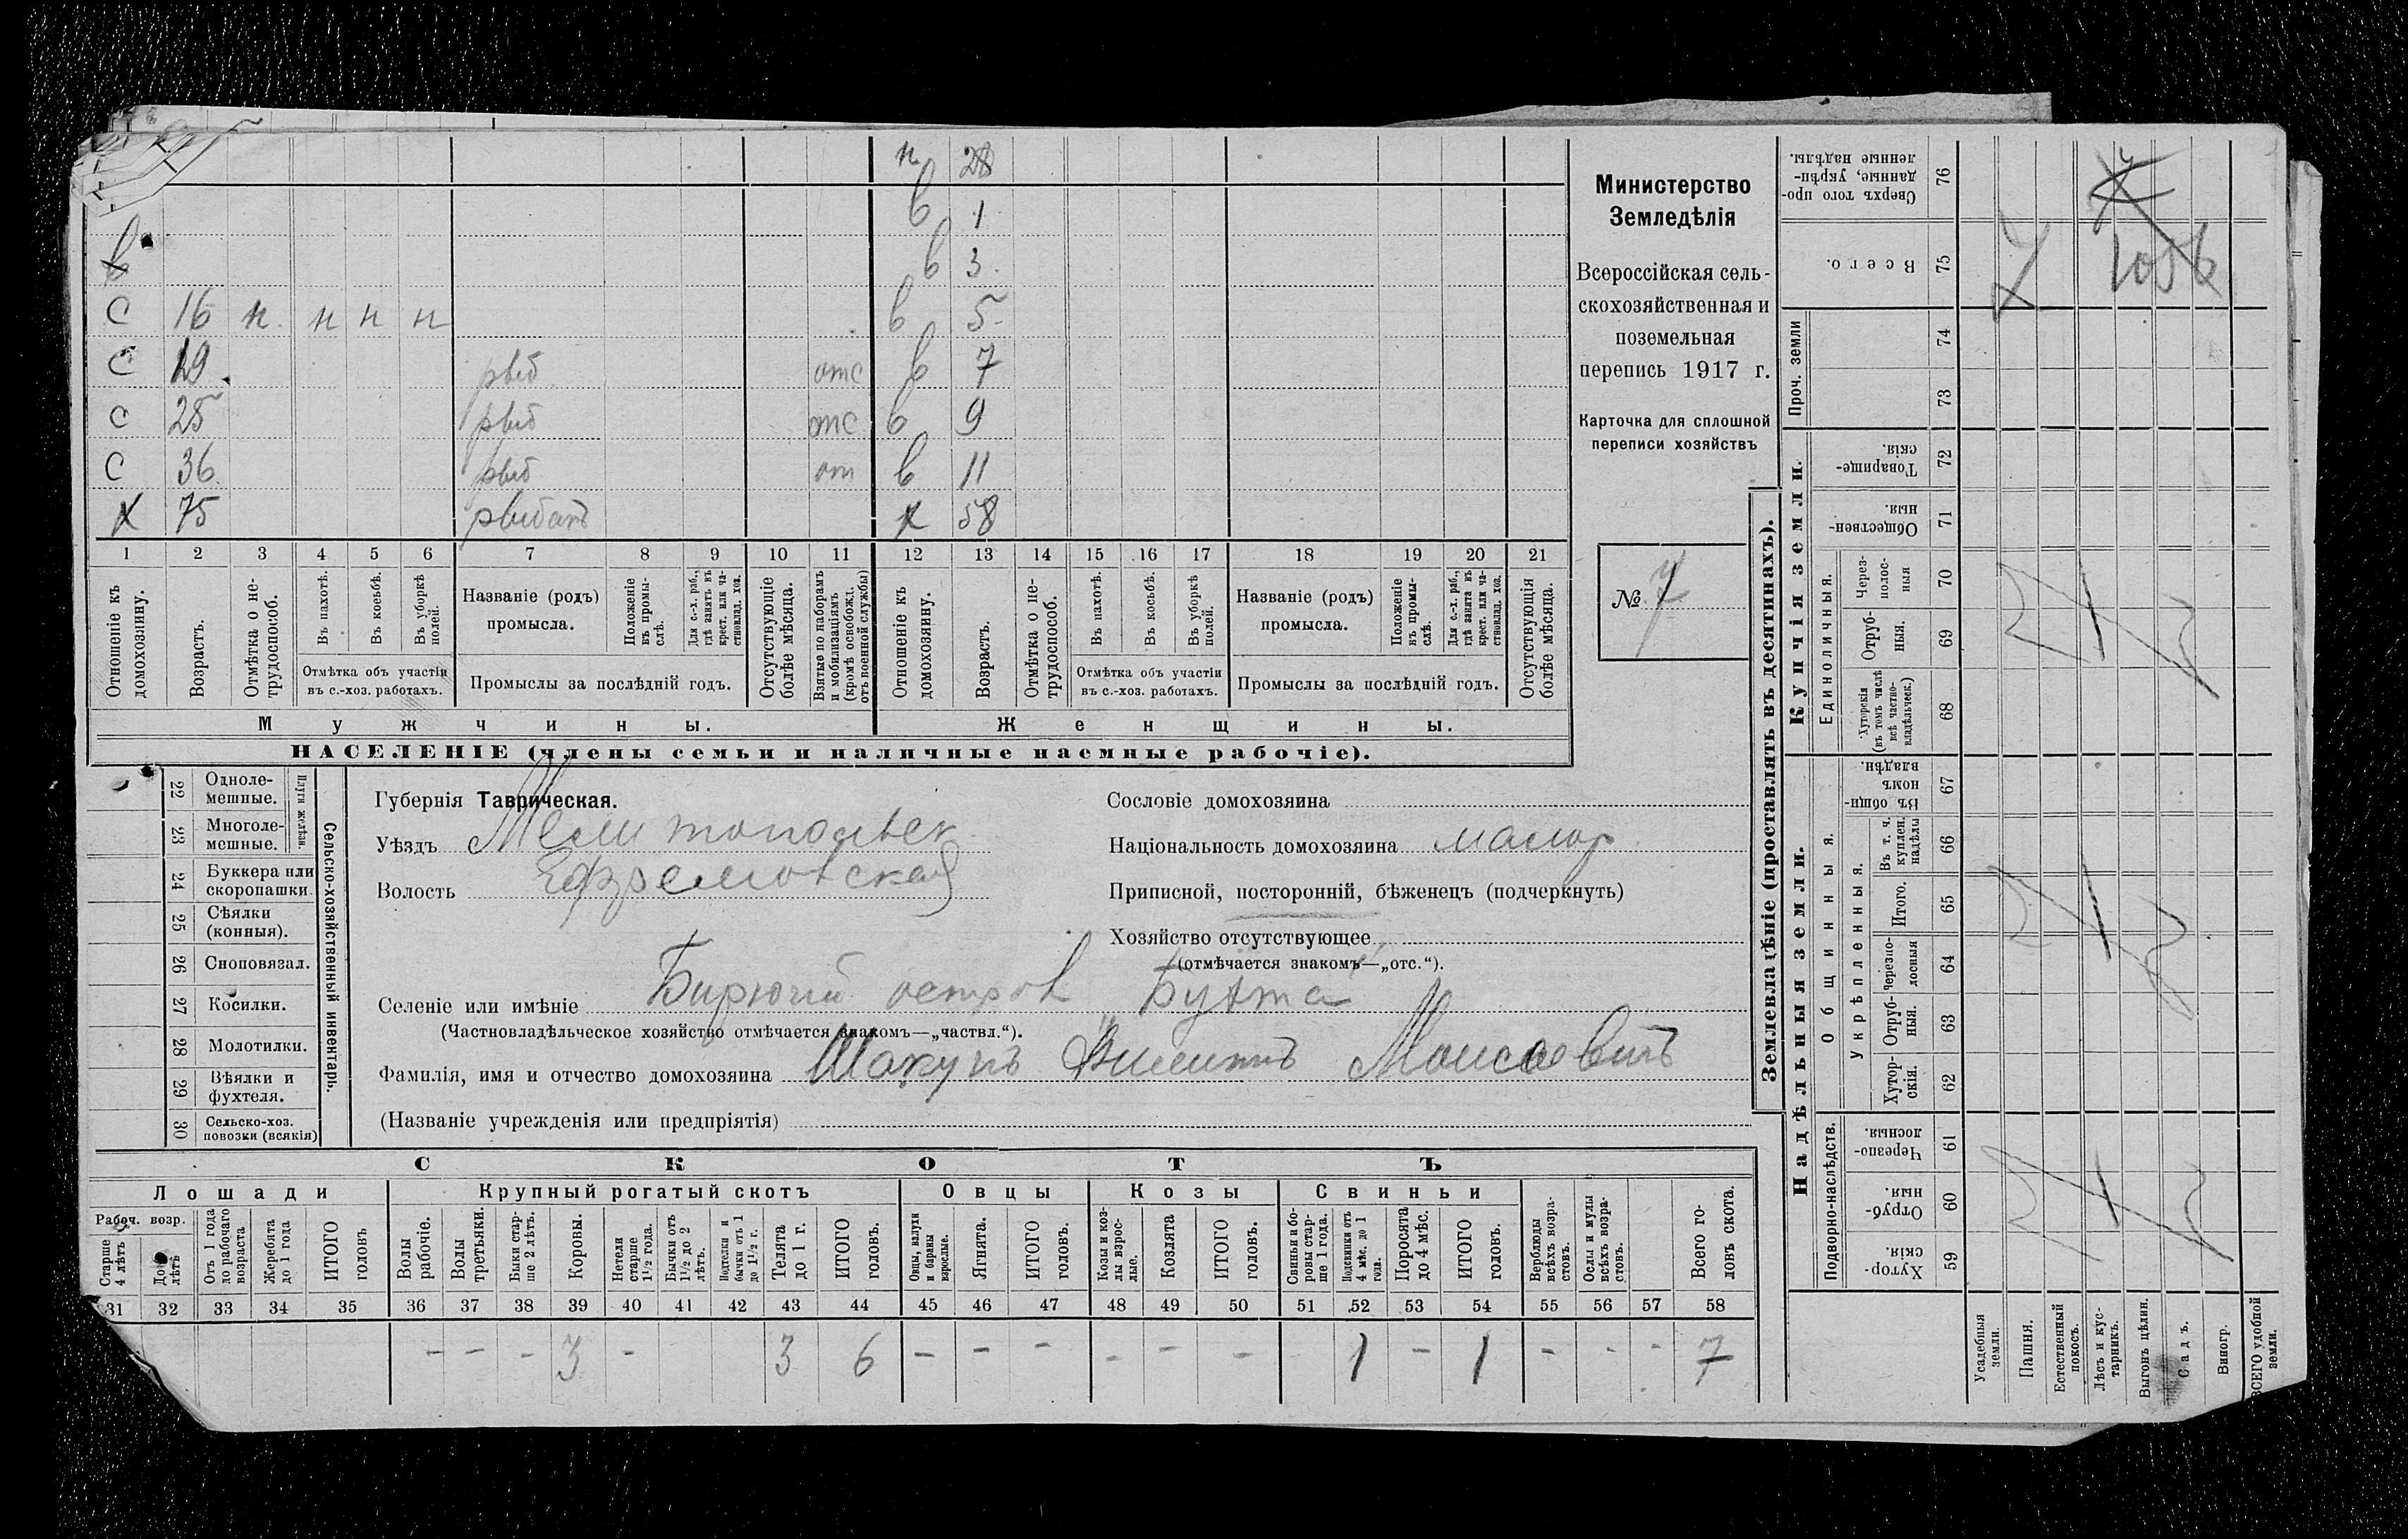 н 28
в 1
в
в 3
С 16 н н н н
в 5
С 19 рыб отс
в 7
С 25 рыб отс
в 9
С 36 рыб от
в 11
х 75 рыбакъ
х 58
1 2 3 4 5 6 7 8 9 10 11 12 13 14 15 16 17 18 19 20 21
Отношеніе къ домохозяину.
Возрастъ.
Отмѣтка о нетрудоспособ.
Въ пахотѣ.
Въ косьбѣ.
Въ уборкѣ полей.
Отмѣтка объ участіи
въ с.-хоз. работахъ.
Названіе (родъ)
промысла.
Положеніе къ промыслѣ.
Для с.-х. раб., гдѣ занятъ въ крест. или частновлад. хоз.
Промыслы за послѣдній годъ.
Отсутствующіе болѣе мѣсяца.
Взятые по наборамъ и мобилизаціямъ (кромѣ освобожд. отъ военной службы)
Отношеніе къ домохозяину.
Возрастъ.
Отмѣтка о нетрудоспособ.
Въ пахотѣ.
Въ косьбѣ.
Въ уборкѣ полей.
Отмѣтка объ участіи
въ с.-хоз. работахъ.
Названіе (родъ)
промысла.
Положеніе къ промыслѣ.
Для с.-х. раб., гдѣ занята въ крест. или частновлад. хоз.
Промыслы за послѣдній годъ.
Отсутствующія болѣе мѣсяца.
Мужчины.
Женщины.
НАСЕЛЕНІЕ (члены семьи и наличные наемные рабочіе).
Министерство
Земледѣлія
Всероссійская сель-
скохозяйственная и
поземельная
перепись 1917 г.
Карточка для сплошной
переписи хозяйствъ
№ 7
22 Одноле-
мешные.
23 Многоле-
мешные.
Плуги желѣзн.
24 Буккера или
скоропашки.
25 Сѣялки
(конныя).
26 Сноповязал.
27 Косилки.
28 Молотилки.
29 Вѣялки и
фухтеля.
30 Сельско-хоз.
повозки (всякія)
Сельско-хозяйственный инвентарь.
Губернія Таврическая.
Уѣздъ Мелитопольск
Волость Ефремовская
Сословіе домохозяина
Національность домохозяина малор
Приписной, посторонній, бѣженецъ (подчеркнуть)
Хозяйство отсутствующее
(отмѣчается знакомъ—„отс.“).
Селеніе или имѣніе Бирючій островъ Бухта
(Частновладѣльческое хозяйство отмѣчается знакомъ—„частвл.“).
Фамилія, имя и отчество домохозяина Моисеевичъ
(Названіе учрежденія или предпріятія)
СКОТЪ
Лошади
Крупный рогатый скотъ
Овцы
Козы
Свиньи
Рабоч. возр.
Старше 4 лѣтъ
До 4 лѣтъ
Отъ 1 года до рабочаго возраста
Жеребята до 1 года
ИТОГО головъ
Волы рабочіе.
Волы третьяки.
Быки старше 2 лѣтъ.
Коровы.
Нетели старше 1½ года.
Бычки отъ 1½ до 2 лѣтъ.
Подтелки и бычки отъ 1 до 1½ г.
Телята до 1 г.
ИТОГО головъ.
Овцы, валухи и бараны взрослые.
Ягнята.
ИТОГО головъ.
Козы и козлы взрослые.
Козлята
ИТОГО головъ.
Свиньи и боровы старше 1 года.
Подсвинки отъ 4 мѣс. до 1 года.
Поросята до 4 мѣс.
ИТОГО головъ.
Верблюды всѣхъ возрастовъ.
Ослы и мулы всѣхъ возрастовъ.
Всего головъ скота.
31 32 33 34 35 36 37 38 39 40 41 42 43 44 45 46 47 48 49 50 51 52 53 54 55 56 57 58
- - - 3 - 3 6 - - - - - - 1 - 1 - - - 7
Землевладѣніе (проставлять въ десятинахъ).
Надѣльныя земли.
Купчія земли.
Подворно-наслѣдств.
Общинныя.
Укрѣпленныя.
Единоличныя.
Проч. земли
Сверхъ того проданные, укрѣпленные надѣлы. 76
Всего. 75
74
73
Товарищескія. 72
Общественныя. 71
Черезполосныя 70
Отрубныя. 69
Хуторскія (въ томъ числѣ всѣ частновладѣльческ.) 68
Въ общинномъ владѣн. 67
Въ т. ч. куплен. надѣлы 66
Итого. 65
Черезполосныя 64
Отрубныя. 63
Хуторскія. 62
Черезполосныя. 61
Отрубныя. 60
Хуторскія. 59
Усадебныя земли.
Пашня.
Естественный покосъ.
Лѣсъ и кустарникъ.
Выгонъ цѣлин.
Садъ.
Виногр.
ВСЕГО удобной земли.